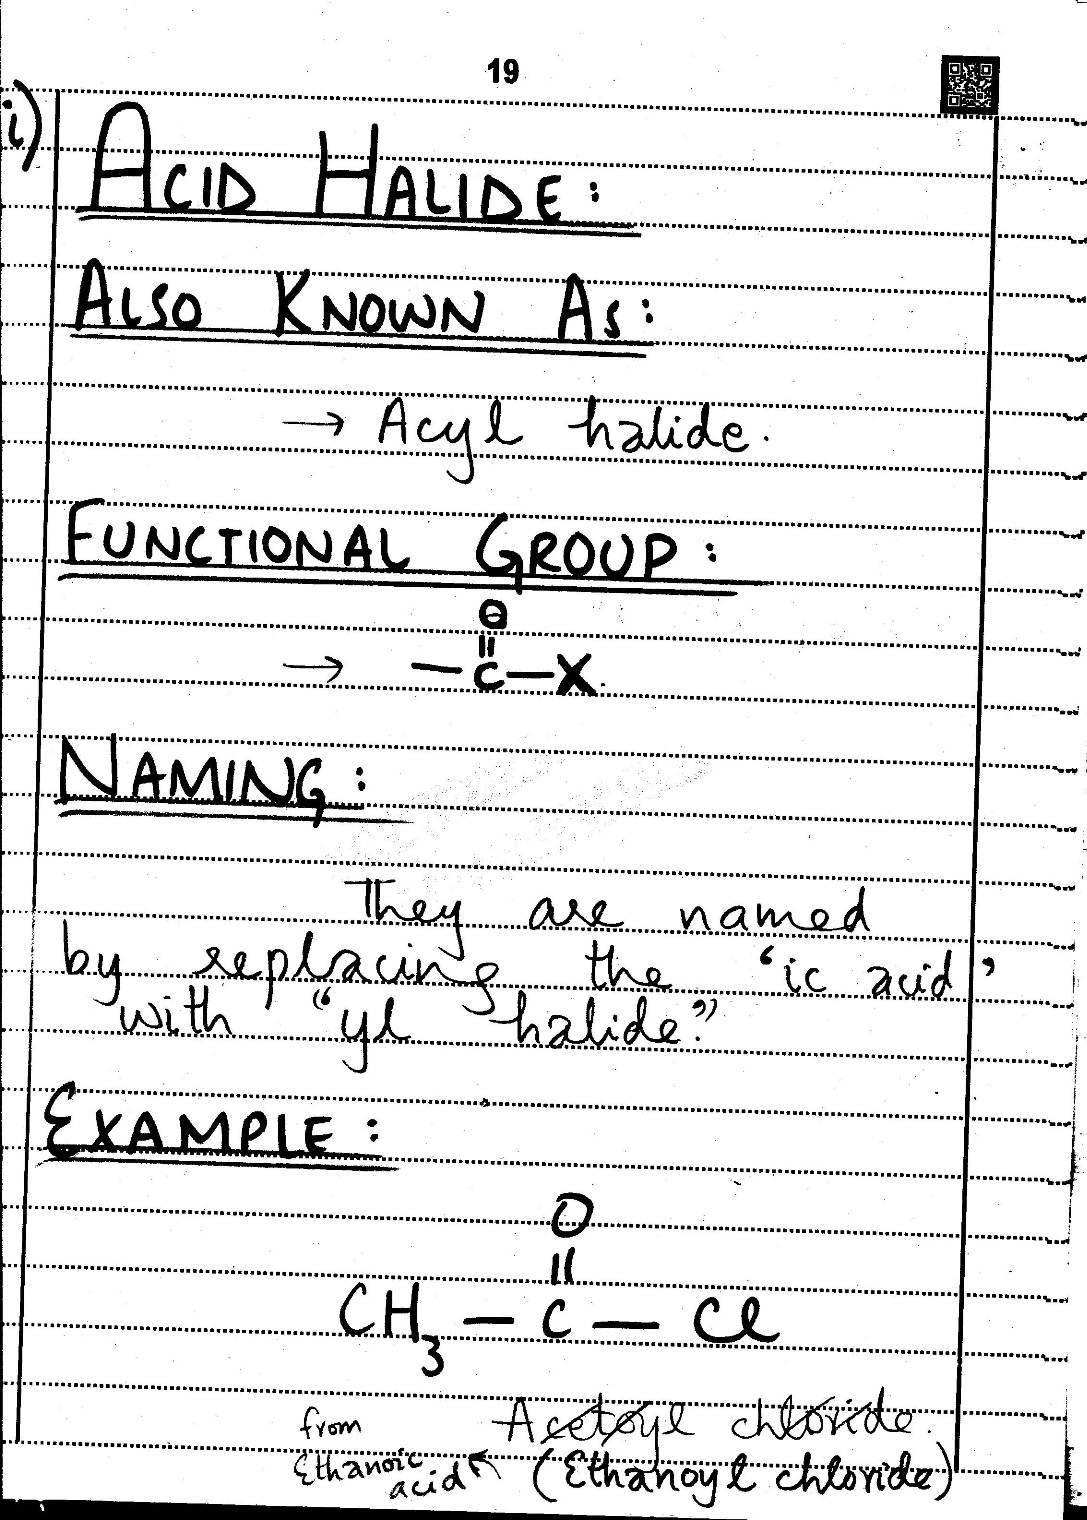 19
i)
ACID HALIDE:
ALSO KNOWN AS:
→ Acyl halide.
FUNCTIONAL GROUP:
O
||
→ —C—X.
NAMING:
They are named
by replacing the 'ic acid'
with "yl halide."
EXAMPLE:
O
||
CH3 — C — Cl
Acetoyl chloride.
from
Ethanoic
acid
(Ethanoyl chloride)